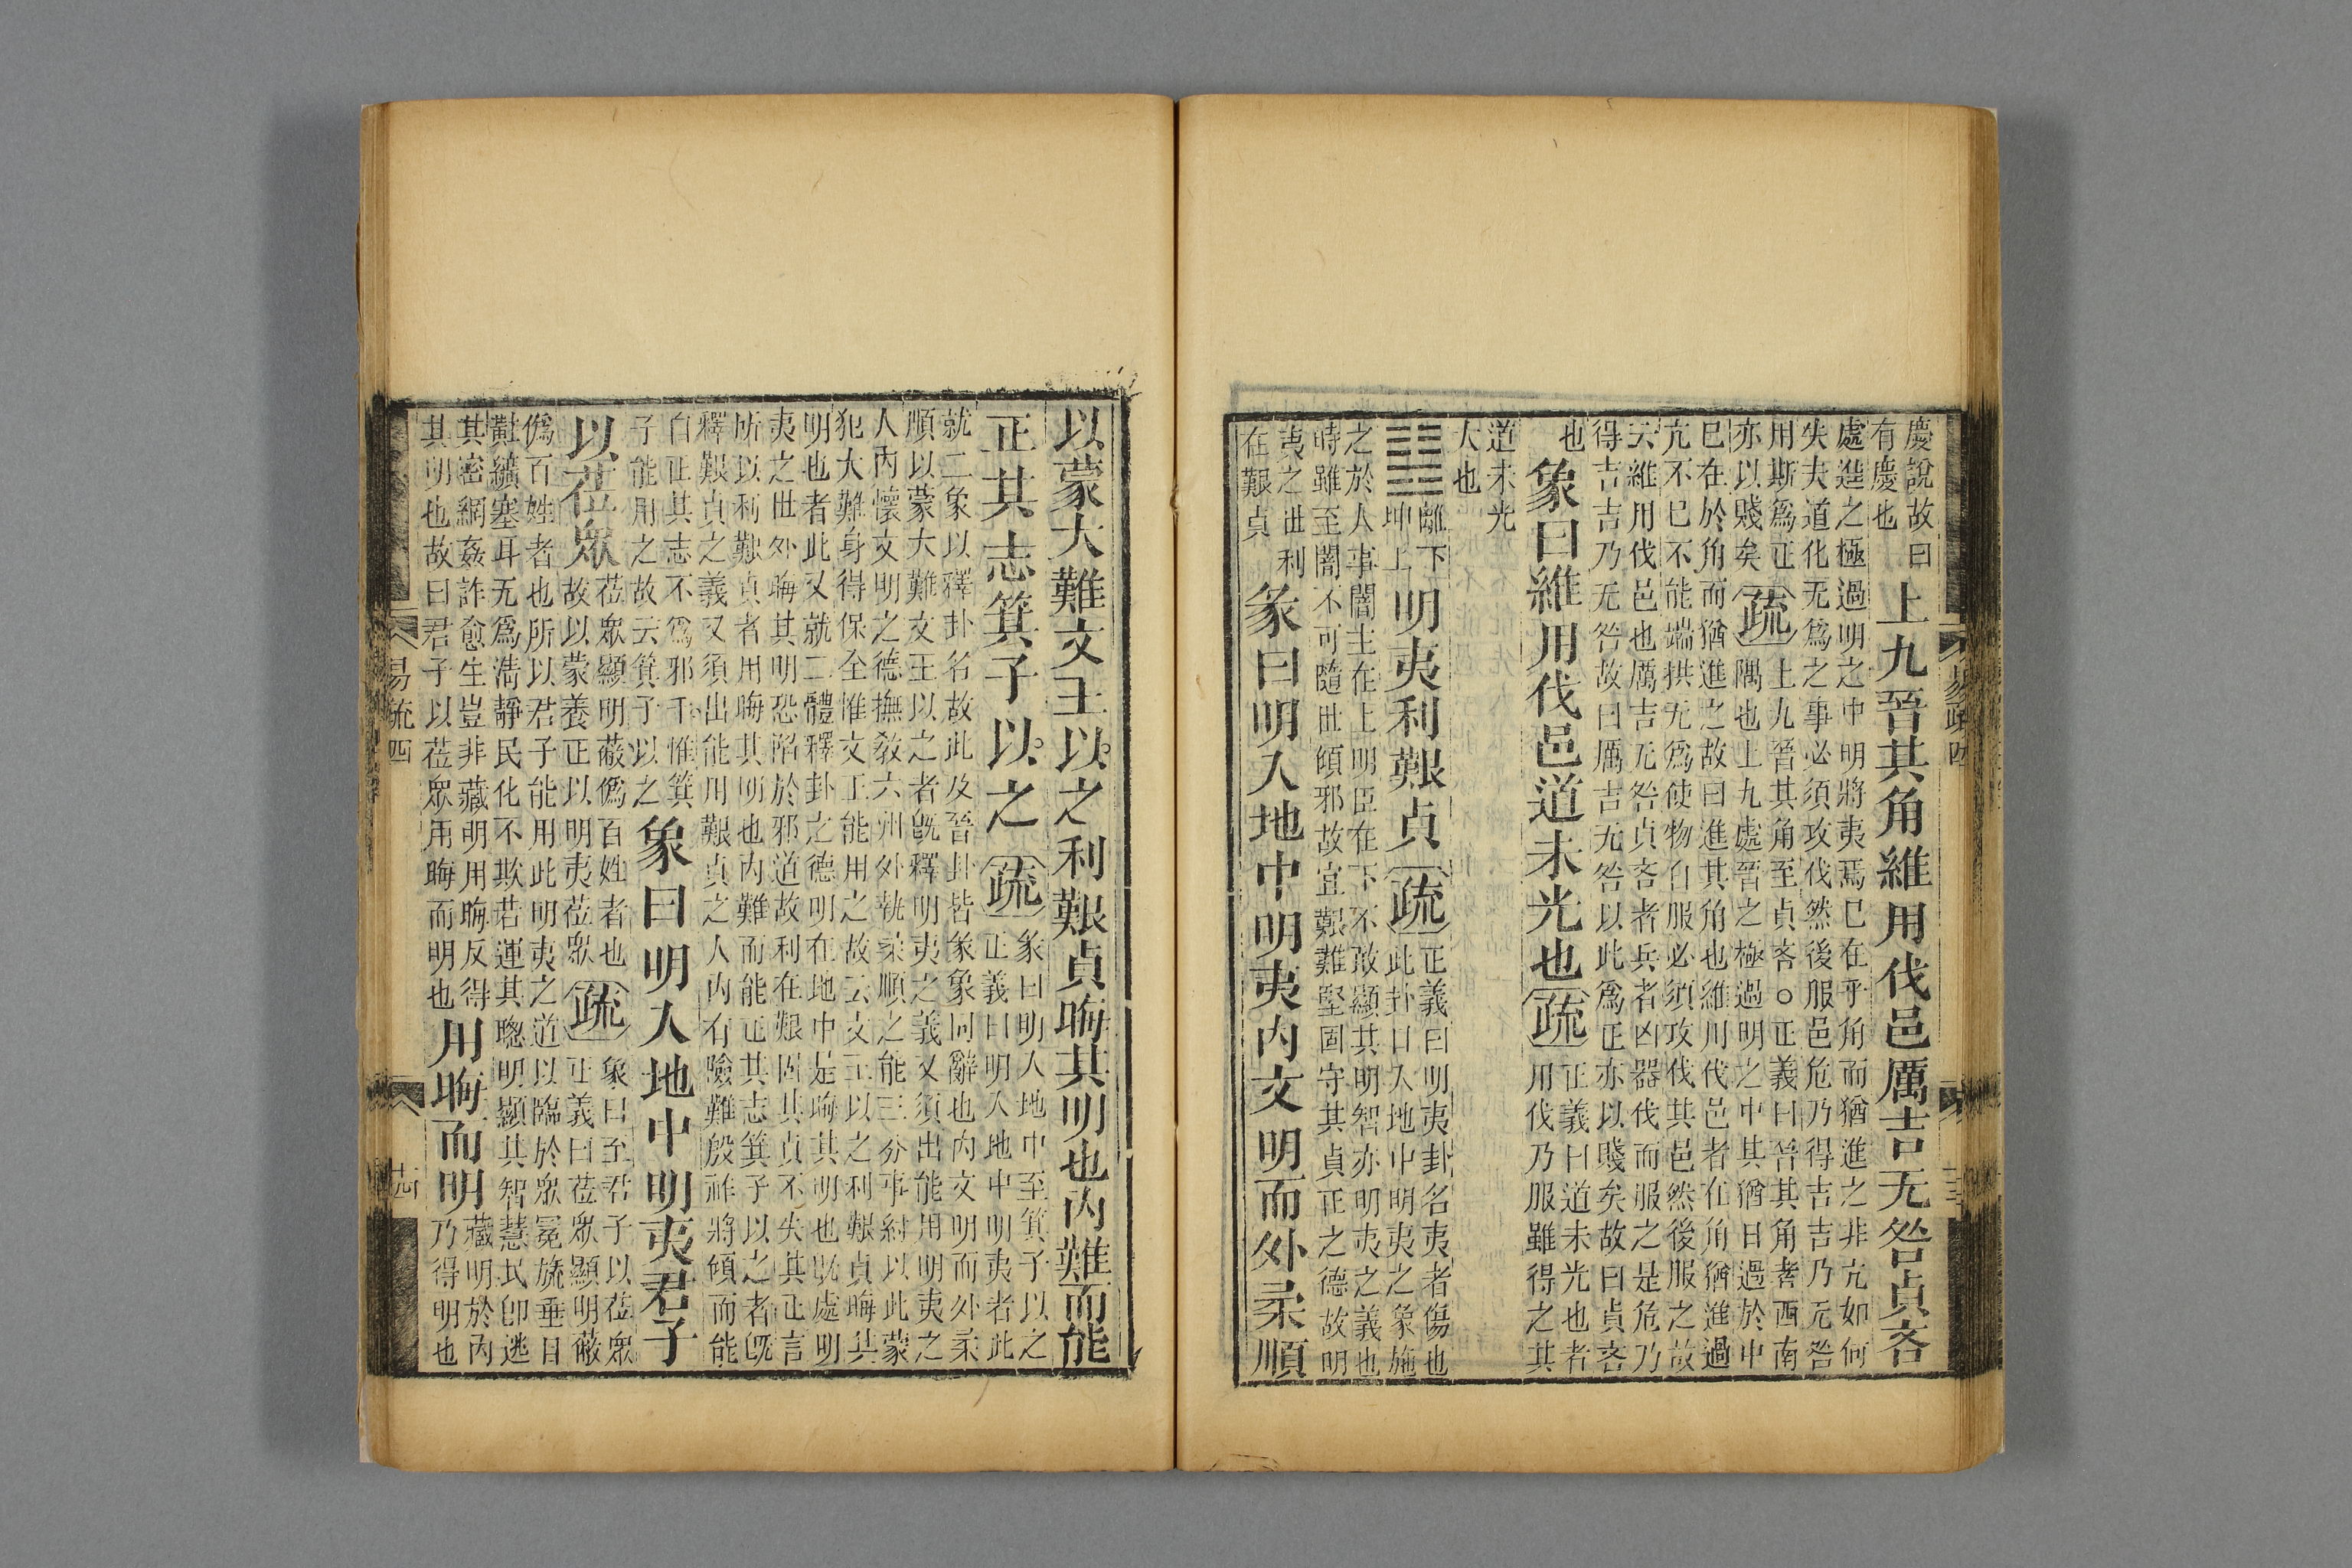 慶說故曰
有慶也
上九晉其角維用伐邑厲吉无咎貞吝
處進之極過明之中明將夷焉已在乎角而猶進之非亢如何
失夫道化无爲之事必須攻伐然後服邑危乃得吉吉乃无咎
用斯爲正
亦以賤矣
疏
上九晉其角至貞吝○正義曰晉其角者西南
隅也上九處晉之極過明之中其猶日過於中
已在於角而猶進之故曰進其角也維用伐邑者在角猶進過
亢不已不能端拱无爲使物自服必須攻伐其邑然後服之故
云維用伐邑也厲吉无咎貞吝者兵者凶器伐而服之是危乃
得吉吉乃无咎故曰厲吉无咎以此爲正亦以賤矣故曰貞吝
也
象曰維用伐邑道未光也
疏
正義曰道未光也者
用伐乃服雖得之其
道未光
大也
䷣
離下
坤上
明夷利艱貞
疏
正義曰明夷卦名夷者傷也
此卦日入地中明夷之象施
之於人事闇主在上明臣在下不敢顯其明智亦明夷之義也
時雖至闇不可隨世傾邪故宜艱難堅固守其貞正之德故明
夷之世利
在艱貞
彖曰明入地中明夷內文明而外柔順
以蒙大難文王以之利艱貞晦其明也內難而能
正其志箕子以之
疏
彖曰明入地中至箕子以之
正義曰明入地中明夷者此
就二象以釋卦名故此及晉卦皆彖象同辭也內文明而外柔
順以蒙大難文王以之者旣釋明夷之義又須出能用明夷之
人內懷文明之德撫敎六州外執柔順之能三分事紂以此蒙
犯大難身得保全惟文王能用之故云文王以之利艱貞晦其
明也者此又就二體釋卦之德明在地中是晦其明也旣處明
夷之世外晦其明恐陷於邪道故利在艱固其貞不失其正言
所以利艱貞者用晦其明也內難而能正其志箕子以之者旣
釋艱貞之義又須出能用艱貞之人內有險難殷祚將傾而能
自正其志不爲邪干惟箕
子能用之故云箕子以之
象曰明入地中明夷君子
以莅衆
莅衆顯明蔽僞百姓者也
故以蒙養正以明夷莅衆
疏
象曰至君子以莅衆
正義曰莅衆顯明蔽
僞百姓者也所以君子能用此明夷之道以臨於衆冕旒垂目
黈纊塞耳无爲淸靜民化不欺若運其聰明顯其智慧民卽逃
其密網姦詐愈生豈非藏明用晦反得
其明也故曰君子以莅衆用晦而明也
用晦而明
藏明於內
乃得明也
易疏四
廿四